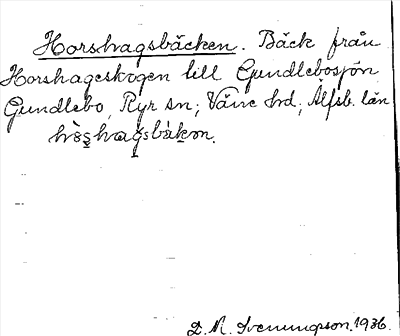 Horshagsbäcken. Bäck från
Horshageskogen till Gundlebosjön
Gundlebo, Ryr sn; Väne hd; Älfsb. län
hòs̱hag̱sbàkən.
D. M. Svenungson. 1936.